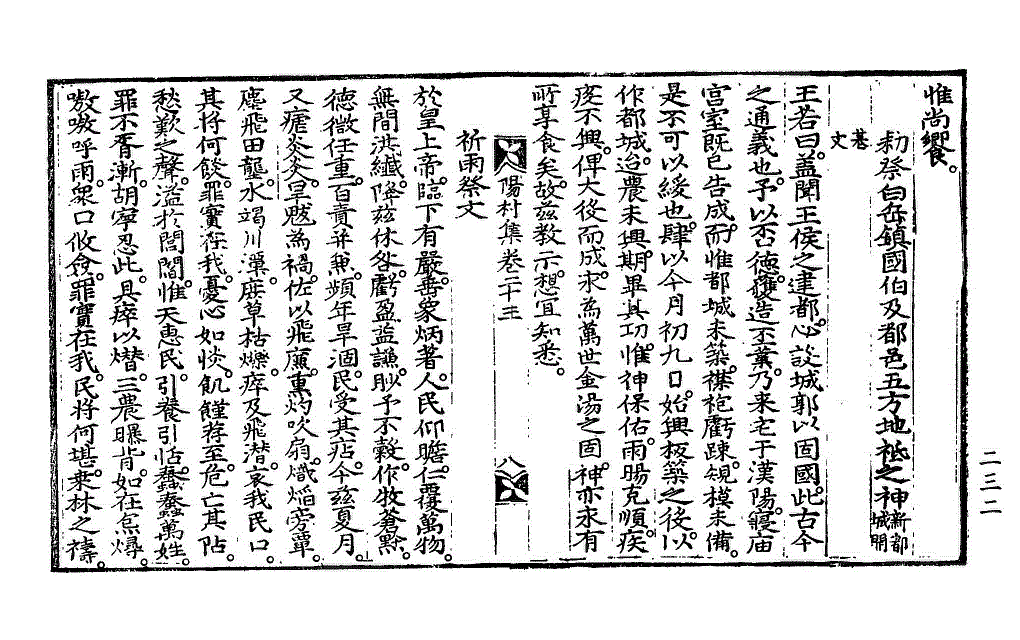 惟尙饗。
勑祭白岳鎭國伯及都邑五方地祗之神新都城開
基文
王若曰。蓋聞王侯之建都。必設城郭以固國。此古今
之通義也。予以否德。獲造丕業。乃來宅于漢陽。寢廟
宮室。旣已告成。而惟都城未築。襟袍虧踈。䂓模未備。
是不可以緩也。肆以今月初九日。始興板築之役。以
作都城。迨農未興。期畢其功。惟神保佑。雨暘克順。疾
疫不興。俾大役而成。永爲萬世金湯之固。神亦永有
所享食矣。故玆敎示。想宜知悉。
陽村集卷二十三
八
祈雨祭文
於皇上帝。臨下有嚴。垂象炳著。人民仰瞻。仁覆萬物。
無間洪纖。降玆休咎。虧盈益謙。眇予不穀。作牧蒼黔。
德微任重。百責幷兼。頻年旱涸。民受其痁。今玆夏月。
又瘧炎炎。旱魃爲禍。佐以飛廉。熏灼吹扇。熾焰旁覃。
塵飛田壟。水竭川潭。庶草枯爍。瘁及飛潛。哀我民口。
其將何餤。罪實在我。憂心如惔。飢饉荐至。危亡其阽。
愁歎之聲。溢於閭閻。惟天惠民。引養引恬。蠢蠢萬姓。
罪不胥漸。胡寧忍此。具瘁以㦧。三農曝背。如在烹燖。
嗷嗷呼雨。衆口攸僉。罪實在我。民將何堪。桑林之禱。
二三二